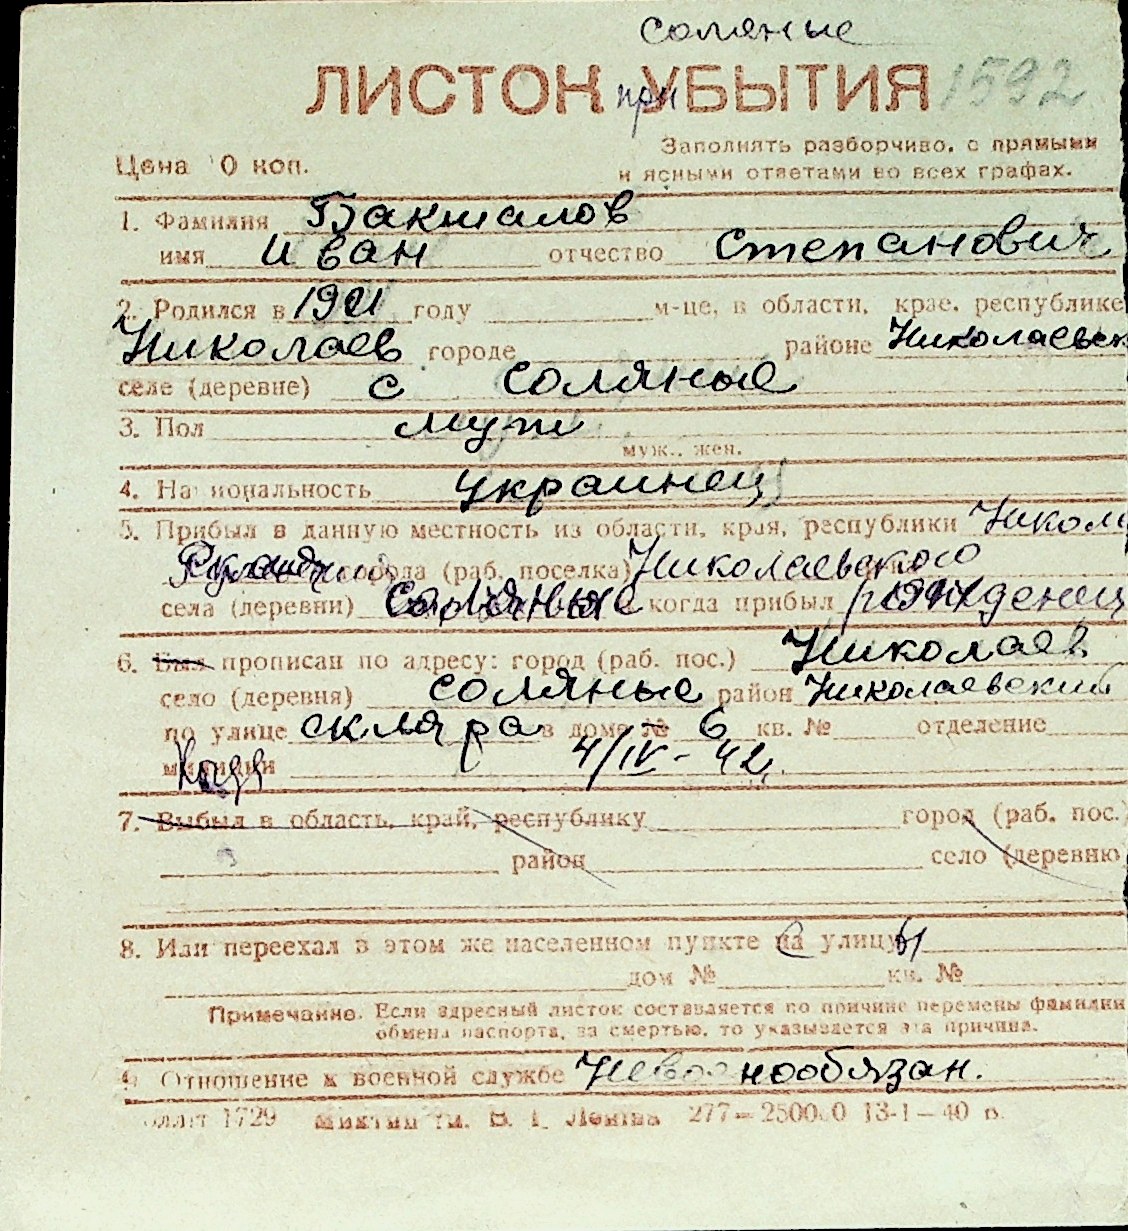 соляные
ЛИСТОК при УБЫТИЯ 1592
Заполнять разборчиво, с прямыми
Цена 10 коп. и ясными ответами во всех графах.
1. Фамилия Бакшалов
имя Иван отчество Степанович
2. Родился в году м-це, в области, крае, республике
Николаев городе районе Николаевск
селе (деревне) с соляные
3. Пол муж
муж., жен.
4. Национальность украинец
5. Прибыл в данную местность из области, края, республики Никол
города (раб. поселка) Николаевского
села (деревни) соляные и когда прибыл рожденец
6. Был прописан по адресу: город (раб. пос.) Николаев
село (деревня) соляные район Николаевский
по улице скляра в доме № 6 кв. № отделение
милиции когда 4/IV-42
7. Выбыл в область, край, республику город (раб. пос.)
район село (деревню
8. Или переехал в этом же населенном пункте на улицу
дом № кв. №
Примечание. Если адресный листок составляется по причине перемены фамилии
обмена паспорта, за смертью, то указывается эта причина.
9. Отношение к военной службе Невоеннообязан.
1729 277—250000 13-1—40 г.